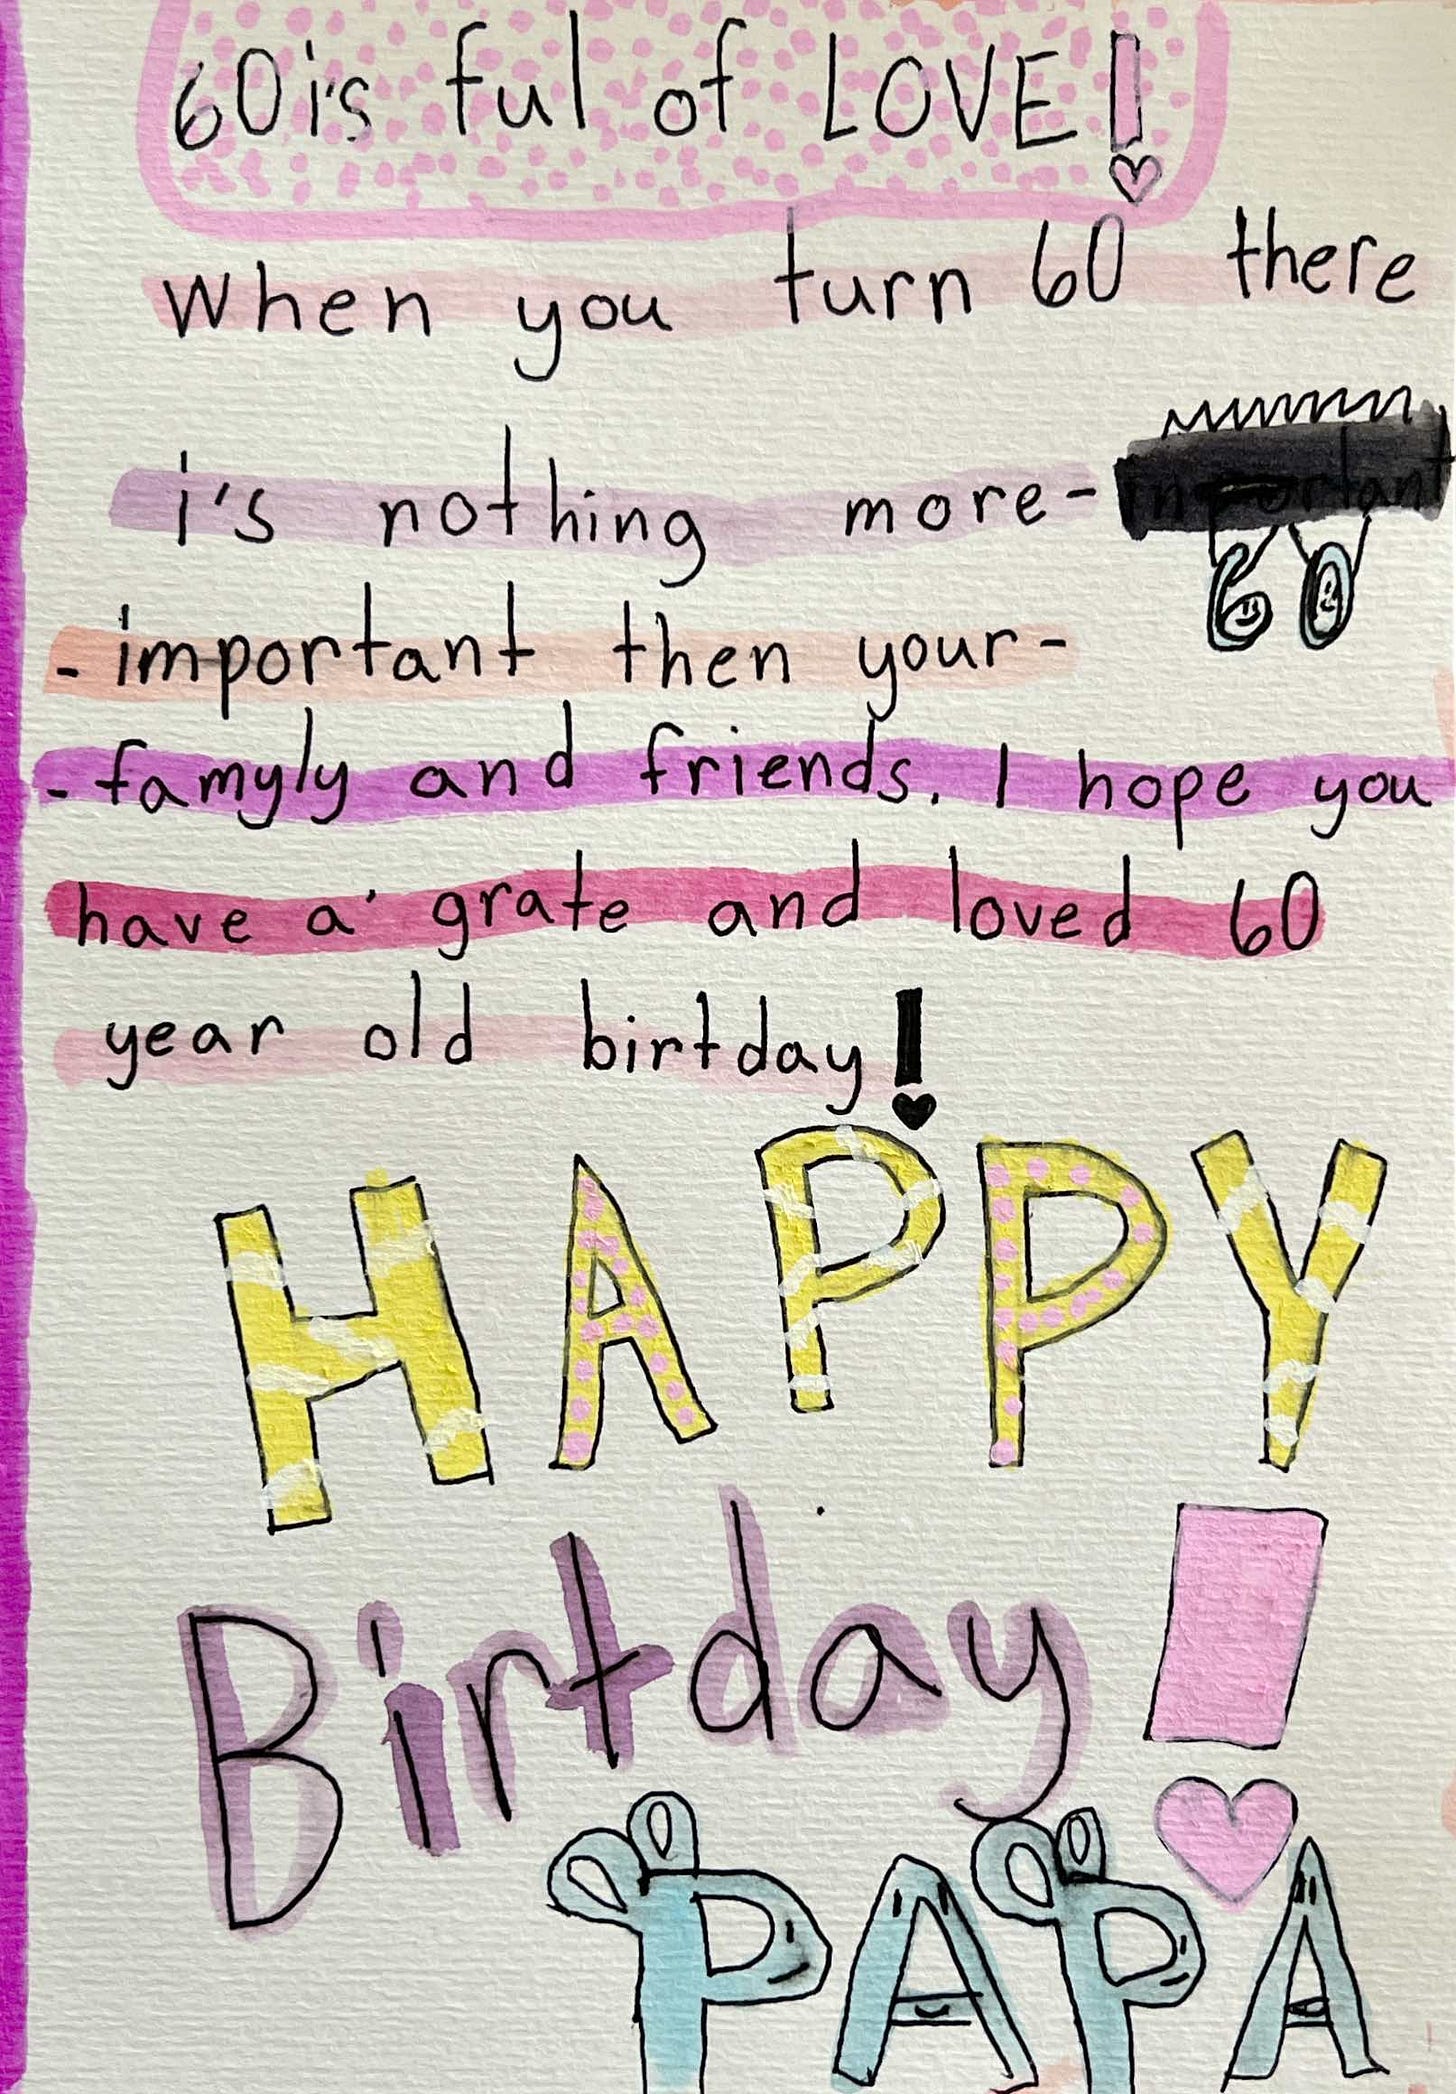 60 is ful of LOVE!
When you turn 60 there
i's nothing more- important
60
- important then your-
- famyly and friends. I hope you
have a grate and loved 60
year old birtday!
HAPPY
Birtday!
PAPA